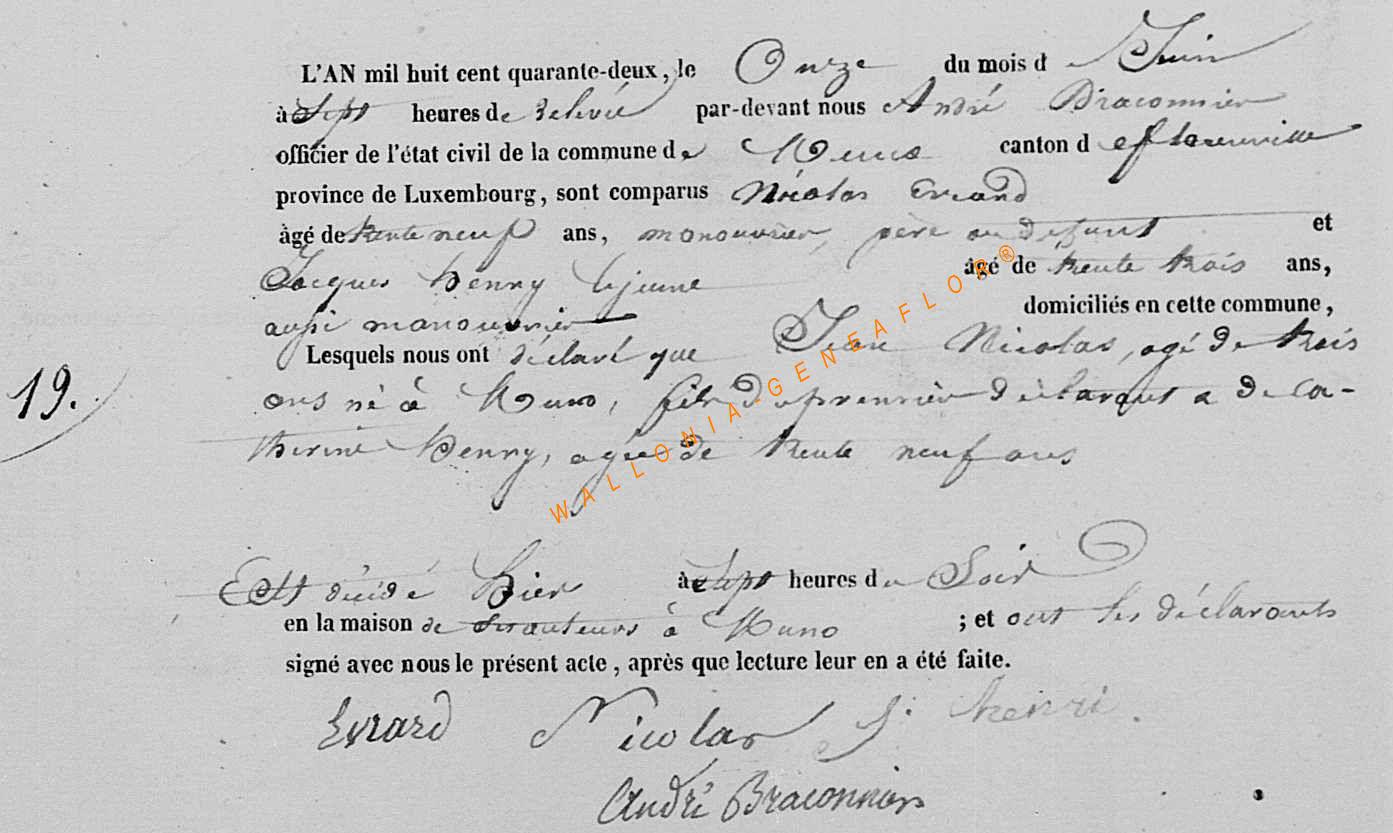 L'AN mil huit cent quarante-deux, le Onze du mois de Juin
à Sept heures de Relevée par-devant nous André Braconnier
officier de l'état civil de la commune de Muno canton de florenville
province de Luxembourg, sont comparus Nicolas Evrard
âgé de trente neuf ans, manouvrier, père au défunt et
Jacques henry lejeune âgé de trente trois ans,
aussi manouvrier domiciliés en cette commune,
Lesquels nous ont déclaré que Jean Nicolas, agé de trois
19.
ans né à Muno, fils du premier déclarant & de Ca-
therine henry, agée de trente neuf ans
Est décédé hier à Sept heures du Soir
en la maison de à Muno ; et ont les déclarants
signé avec nous le présent acte, après que lecture leur en a été faite.
Evrard Nicolas J. henri.
André Braconnier
WALLONIA-GENEAFLOR®